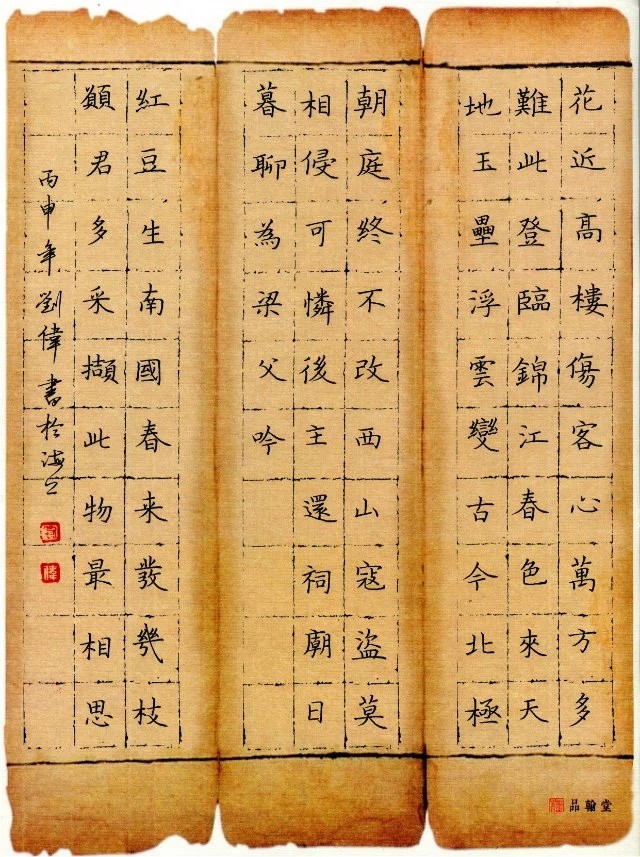 花近高樓傷客心萬方多
難此登臨錦江春色來天
地玉壘浮雲變古今北極
朝庭終不改西山寇盜莫
相侵可憐後主還祠廟日
暮聊為梁父吟
紅豆生南國春来發幾枝
願君多采擷此物最相思
丙申年劉偉書於海上
品翰堂